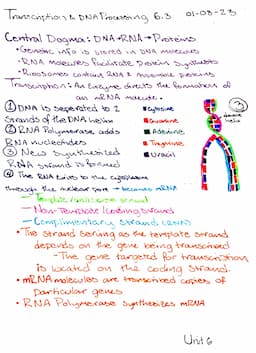 Transcription & DNA Processing 6.3 01-08-23
Central Dogma: DNA → RNA → Proteins
• Genetic info is stored in DNA molecules
• RNA molecules facilitate protein synthesis
• Ribosomes contain RNA & assemble proteins
Transcription: An Enzyme directs the formation of
an mRNA molecule.
① DNA is separated to 2
strands of the DNA helix
② RNA Polymerase adds
RNA nucleotides
③ New Synthesized
RNA strand is formed
④ The RNA travels to the cytoplasm
through the nuclear pore → becomes mRNA
Cytosine
Guanine
Adenine
Thymine
Uracil
- Template/antisense strand
- Non-Template/coding strand
- Complimentary strand (RNA)
• The strand serving as the template strand
depends on the gene being transcribed
- The gene targeted for transcription
is located on the coding strand.
• mRNA molecules are transcribed copies of
particular genes
• RNA Polymerase synthesizes mRNA
Unit 6